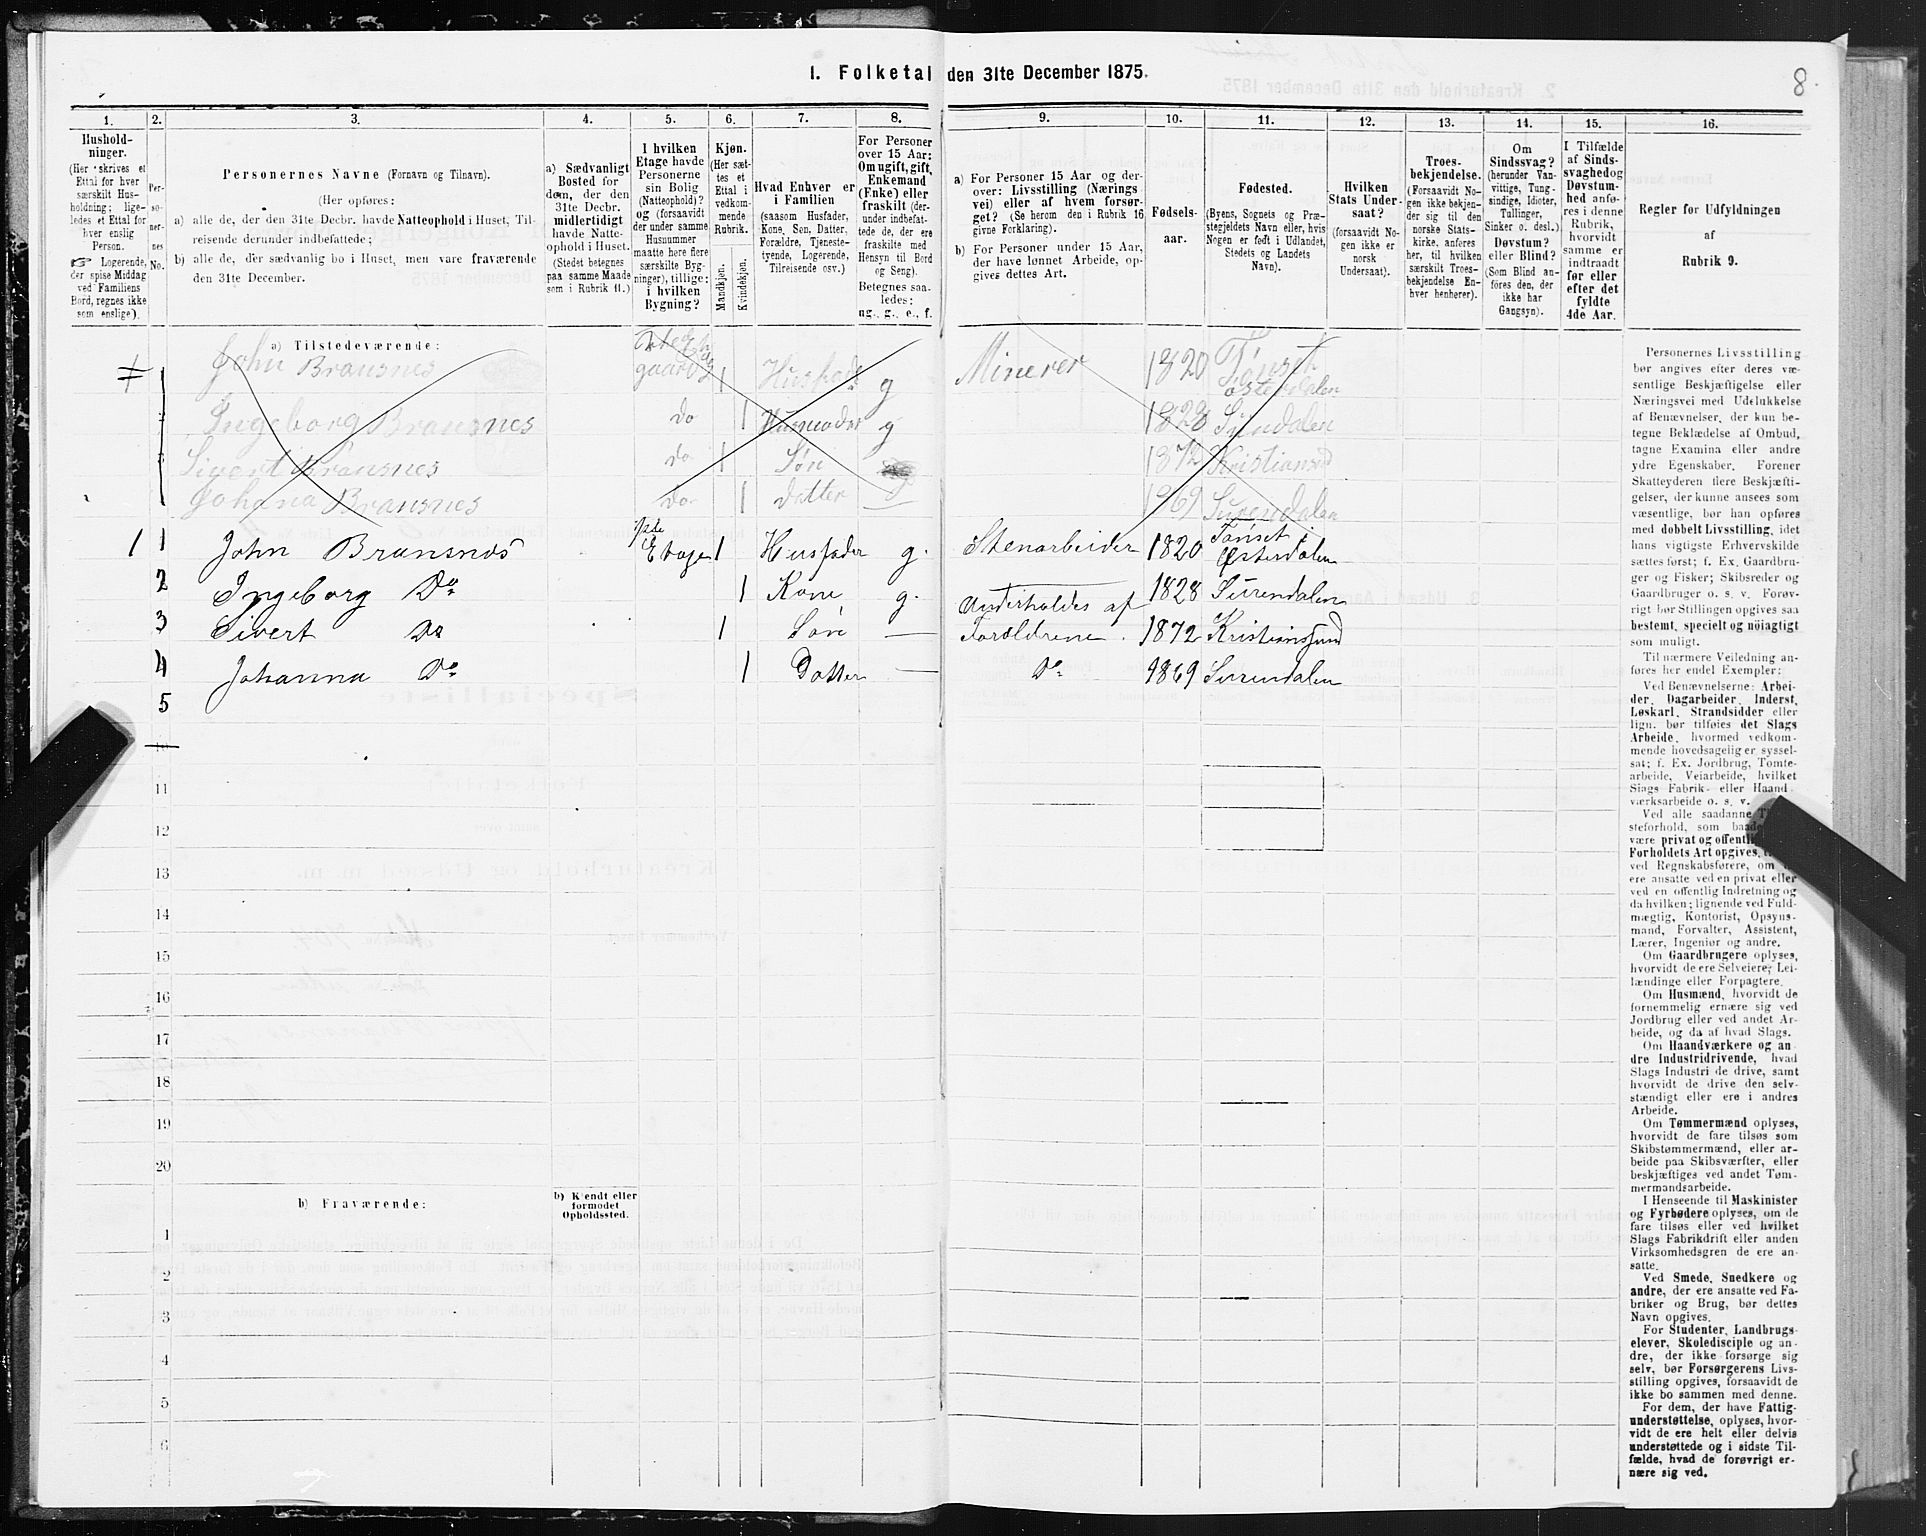 1. Folketal den 31te December 1875.
8.
1. 2. 3. 4. 5. 6. 7. 8. 9. 10. 11. 12. 13. 14. 15. 16.
Hushold-
ninger.
(Her skrives et
Ettal for hver
særskilt Hus-
holdning; lige-
ledes et Ettal for
hver enslig
Person.
☞ Logerende,
der spise Middag
ved Familiens
Bord, regnes ikke
som enslige).
Per-
so-
ner-
nes
No.
Personernes Navne (Fornavn og Tilnavn).
(Her opføres:
a) alle de, der den 31te Decbr. havde Natteophold i Huset, Til-
reisende derunder indbefattede;
b) alle de, der sædvanlig bo i Huset, men vare fraværende
den 31te December.
a) Sædvanligt
Bosted for
dem, der den
31te Decbr.
midlertidigt
havde Natte-
ophold i Huset.
(Stedet betegnes
paa samme Maade
som i Rubrik 11.)
I hvilken
Etage havde
Personerne
sin Bolig
(Natteophold)?
og (forsaavidt
der under samme
Husnummer
maatte høre flere
særskilte Byg-
ninger), tillige:
i hvilken
Bygning?
Kjøn.
(Her sæt-
tes et
Ettal i
vedkom-
mende
Rubrik.
Mandkjøn.
Kvindekjøn.
Hvad Enhver er
i Familien
(saasom Husfader,
Kone, Søn, Datter,
Forældre, Tjeneste-
tyende, Logerende,
Tilreisende osv.)
For Personer
over 15 Aar:
Om ugift, gift,
Enkemand
(Enke) eller
fraskilt (der-
under indbefat-
tede de, der ere
fraskilte med
Hensyn til Bord
og Seng).
Betegnes saa-
ledes:
ug., g., e., f.
a) For Personer 15 Aar og der-
over: Livsstilling (Nærings-
vei) eller af hvem forsør-
get? (Se herom den i Rubrik 16
givne Forklaring).
b) For Personer under 15 Aar,
der have lønnet Arbeide, op-
gives dettes Art.
Fødsels-
aar.
Fødested.
(Byens, Sognets og Præ-
stegjeldets Navn eller, hvis
Nogen er født i Udlandet,
Stedets og Landets
Navn).
Hvilken
Stats Under-
saat?
(forsaavidt No-
gen ikke er
norsk
Undersaat).
Troes-
bekjendelse.
(Forsaavidt No-
gen ikke bekjen-
der sig til den
norske Stats-
kirke, anføres
her, til hvilken
særskilt Troes-
bekjendelse En-
hver henhører).
Om
Sindssvag?
(herunder Van-
vittige, Tung-
sindige, Idioter,
Tullinger,
Sinker o. desl.)
Døvstum?
eller Blind?
(Som Blind an-
føres den, der
ikke har
Gangsyn).
I Tilfælde
af Sinds-
svaghed og
Døvstum-
hed anfø-
res i denne
Rubrik,
hvorvidt
samme er
indtraadt
før eller
efter det
fyldte
4de Aar.
Regler for Udfyldningen
af
Rubrik 9.
a) Tilstedeværende:
1 John Bransnes gaard 1 Husfader g Minerer 1820 Tønset Østerdalen
2 Ingeborg Bransnes Do 1 Husmoder g 1828 Surndalen
3 Sivert Bransnes Do 1 Søn 1872 Kristiansund
Johana Bransnes Do 1 Datter 1869 Surendalen
1 1 John Bransnes Etage 1 Husfader g. Stenarbeider 1820 Tønset Østerdalen
2 Ingeborg Do 1 Kone g. 1828 Surendalen
3 Sivert Do 1 Søn — Underholdes af Forældrene. 1872 Kristianssund
4 Johanna Do 1 Datter — Do 1869 Surendalen
5
10
11
12
13
14
15
16
17
18
19
20
b) Fraværende:
b) Kjendt eller
formodet
Opholdssted.
1
2
3
4
5
6
Personernes Livsstilling
bør angives efter deres væ-
sentlige Beskjæftigelse eller
Næringsvei med Udelukkelse
af Benævnelser, der kun be-
tegne Beklædelse af Ombud,
tagne Examina eller andre
ydre Egenskaber. Forener
Skatteyderen flere Beskjæfti-
gelser, der kunne ansees som
væsentlige, bør han opføres
med dobbelt Livsstilling, idet
hans vigtigste Erhvervskilde
sættes først; f. Ex. Gaardbru-
ger og Fisker; Skibsreder og
Gaardbruger o. s. v. Forøv-
rigt bør Stillingen opgives saa
bestemt, specielt og nöiagtigt
som muligt.
Til nærmere Veiledning an-
føres her endel Exempler:
Ved Benævnelserne: Arbei-
der, Dagarbeider, Inderst,
Løskarl, Strandsidder eller
lign. bør tilføies det Slags
Arbeide, hvormed vedkom-
mende hovedsagelig er syssel-
sat; f. Ex. Jordbrug, Tomte-
arbeide, Veiarbeide, hvilket
Slags Fabrik- eller Haand-
værksarbeide o. s. v.
Ved alle saadanne
steforhold, som
være privat og
Forholdets Art opgives,
ved Regnskabsførere, om
ere ansatte ved en privat eller
ved en offentlig Indretning og
da hvilken; lignende ved Fuld-
mægtig, Kontorist, Opsyns-
mand, Forvalter, Assistent,
Lærer, Ingeniør og andre.
Om Gaardbrugere oplyses,
hvorvidt de ere Selveiere, Lei-
lændinge eller Forpagtere.
Om Husmænd, hvorvidt de
fornemmelig ernære sig ved
Jordbrug eller ved andet Ar-
beide, og da af hvad Slags.
Om Haandværkere og an-
dre Industridrivende, hvad
Slags Industri de drive, samt
hvorvidt de drive den selv-
stændigt eller ere i andres
Arbeide.
Om Tømmermænd oplyses,
hvorvidt de fare tilsøs som
Skibstømmermænd, eller ar-
beide paa Skibsværfter, eller
beskjæftiges ved andet Tøm-
mermandsarbeide.
I Henseende til Maskinister
og Fyrbødere oplyses, om de
fare tilsøs eller ved hvilket
Slags Fabrikdrift eller anden
Virksomhedsgren de ere an-
satte.
Ved Smede, Snedkere og
andre, der ere ansatte ved Fa-
briker og Brug, bør dettes
Navn opgives.
For Studenter, Landbrugs-
elever, Skoledisciple og an-
dre, der ikke forsørge sig
selv, bør Forsørgerens Livs-
stilling opgives, forsaavidt de
ikke bo sammen med denne.
For dem, der have Fattig-
understøttelse, oplyses, hvor-
vidt de ere helt eller delvis
understøttede og i sidste Til-
fælde, hvad de forøvrigt er-
nære sig ved.